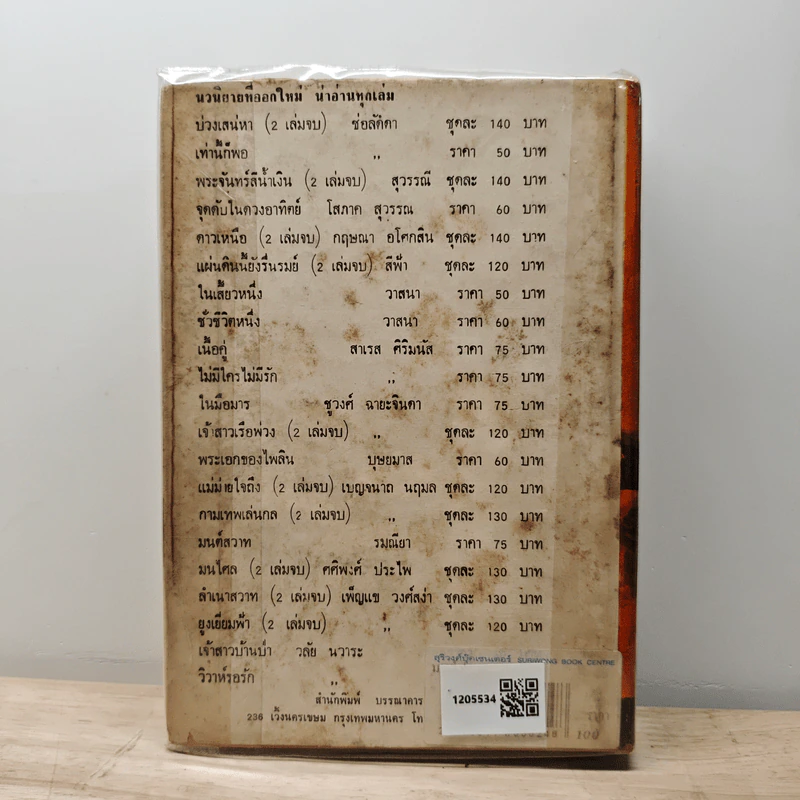 นวนิยายที่ออกใหม่ น่าอ่านทุกเล่ม
บ่วงเสน่หา (2 เล่มจบ) ช่อลัดดา ชุดละ 140 บาท
เท่านี้ก็พอ ,, ราคา 50 บาท
พระจันทร์สีน้ำเงิน (2 เล่มจบ) สุวรรณี ชุดละ 140 บาท
จุดดับในดวงอาทิตย์ โสภาค สุวรรณ ราคา 60 บาท
ดาวเหนือ (2 เล่มจบ) กฤษณา อโศกสิน ชุดละ 140 บาท
แผ่นดินนี้ยังรื่นรมย์ (2 เล่มจบ) สีฟ้า ชุดละ 120 บาท
ในเสี้ยวหนึ่ง วาสนา ราคา 50 บาท
ชั่วชีวิตหนึ่ง วาสนา ราคา 60 บาท
เนื้อคู่ สาเรส ศิริมนัส ราคา 75 บาท
ไม่มีใครไม่มีรัก ,, ราคา 75 บาท
ในมือมาร ชูวงศ์ ฉายะจินดา ราคา 75 บาท
เจ้าสาวเรือพ่วง (2 เล่มจบ) ,, ชุดละ 120 บาท
พระเอกของไพลิน บุษยมาส ราคา 60 บาท
แม่ม่ายใจถึง (2 เล่มจบ) เบญจนาถ นฤมล ชุดละ 120 บาท
กามเทพเล่นกล (2 เล่มจบ) ,, ชุดละ 130 บาท
มนต์สวาท รมณียา ราคา 75 บาท
มนไศล (2 เล่มจบ) ศศิพงศ์ ประไพ ชุดละ 130 บาท
ลำเนาสวาท (2 เล่มจบ) เพ็ญแข วงศ์สง่า ชุดละ 130 บาท
ยูงเยี่ยมฟ้า (2 เล่มจบ) ,, ชุดละ 120 บาท
เจ้าสาวบ้านป่า วลัย นวาระ
วิวาห์รอรัก ,,
สุริวงศ์บุ๊คเซนเตอร์ SURIWONG BOOK CENTRE
1205534
สำนักพิมพ์ บรรณาคาร
236 เวิ้งนครเขษม กรุงเทพมหานคร โท